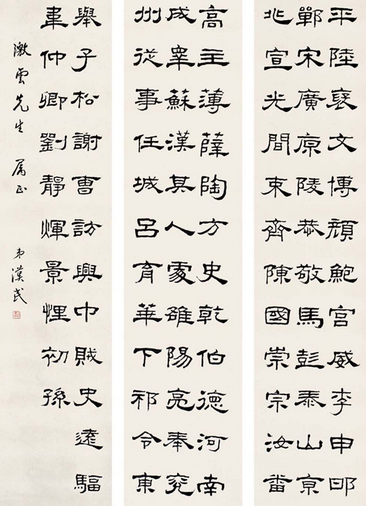 平陸襃文博頏鮑宮威李申邯
鄲宋廣原陵恭敬馬彭泰山京
兆宣光間束齊陳國崇宗汝番
高主薄薛陶方史乾伯德河南
成睪蘇漢其人處雒陽亮奉兗
州從事任城呂育華下邳令東
舉子松謝曹訪興中賊史遠驅
車仲卿劉靜煇景悝初孫
澂雲先生 屬正 弟漢民